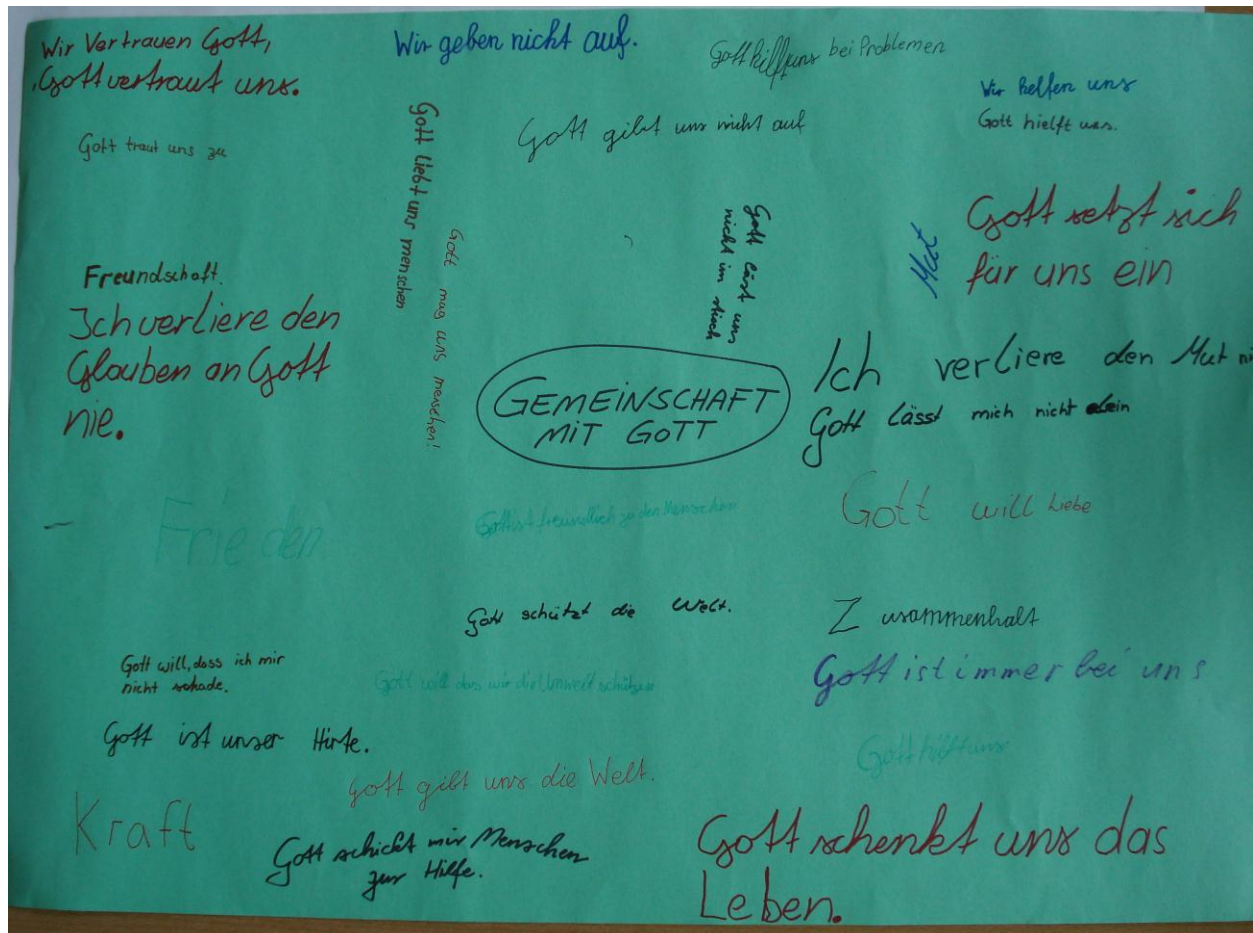 Wir Vertrauen Gott,
Gott vertraut uns.
Wir geben nicht auf.
Gott hilft uns bei Problemen
Wir helfen uns
Gott hielft uns.
Gott traut uns zu
Gott liebt uns menschen
Gott gibt uns nicht auf
Gott mag uns menschen!
Gott lässt uns
nicht im stich
Mut
Gott setzt sich
für uns ein
Freundschaft.
Ich verliere den
Glauben an Gott
nie.
GEMEiNSCHAFT
MiT GoTT
Ich verliere den Mut ni
Gott lässt mich nicht alein
Frieden
Gott ist freundlich zu den Menschen
Gott will Liebe
Gott schützt die Welt.
Zusammenhalt
Gott will, dass ich mir
nicht schade.
Gott will das wir die Umwelt schützen
Gott ist immer bei uns
Gott ist unser Hirte.
Gott hilft uns
Gott gibt uns die Welt.
Kraft
Gott schickt mir Menschen
zur Hilfe.
Gott schenkt uns das
Leben.